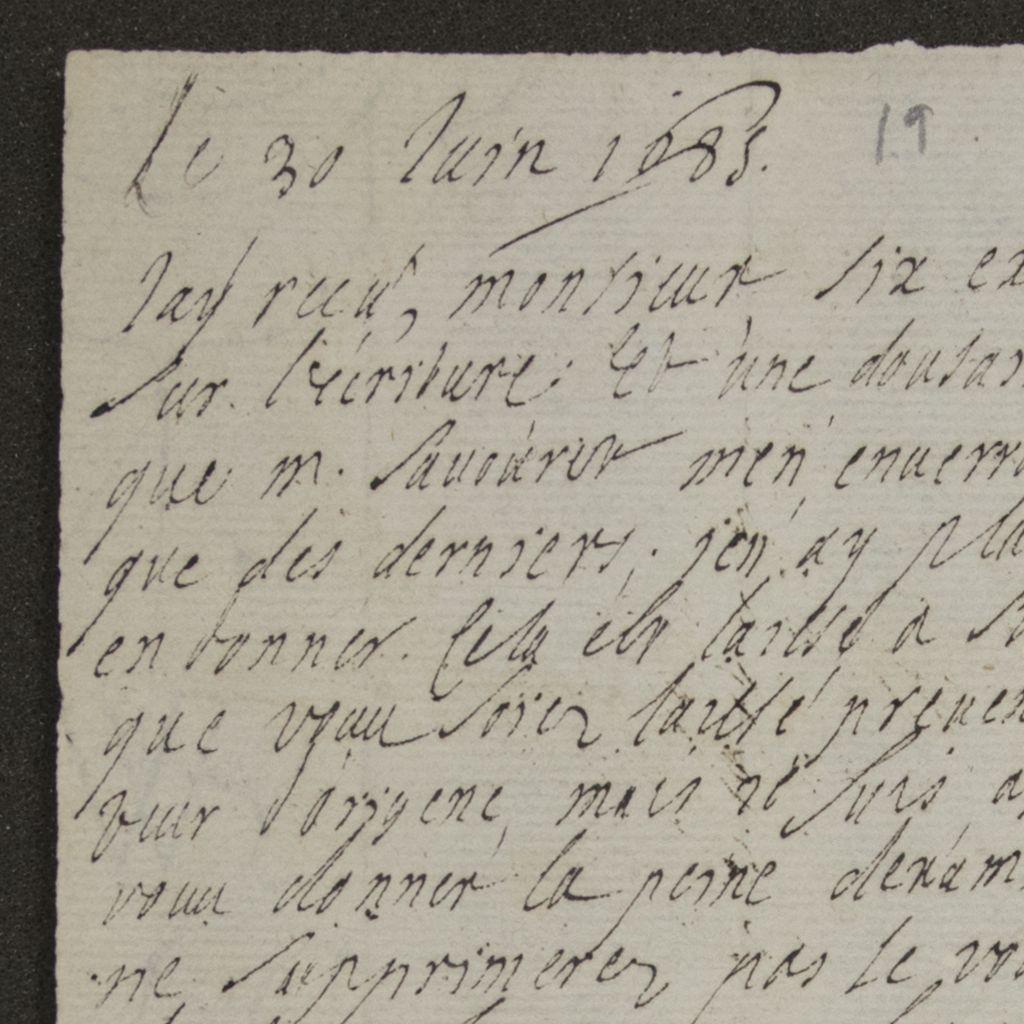 Le 30 Juin 1685. 19
Jay receu, monsieur six ex
sur l'écriture; Et une dousai
que m. Sauouret m'en enuerra
que des derniers; j'en ay pla
en donner. Cela est laissé a
que vous soiez laissé preuen
pour origene, mais ie suis a
vous donner la peine d'exam
ne supprimerez pas le vo